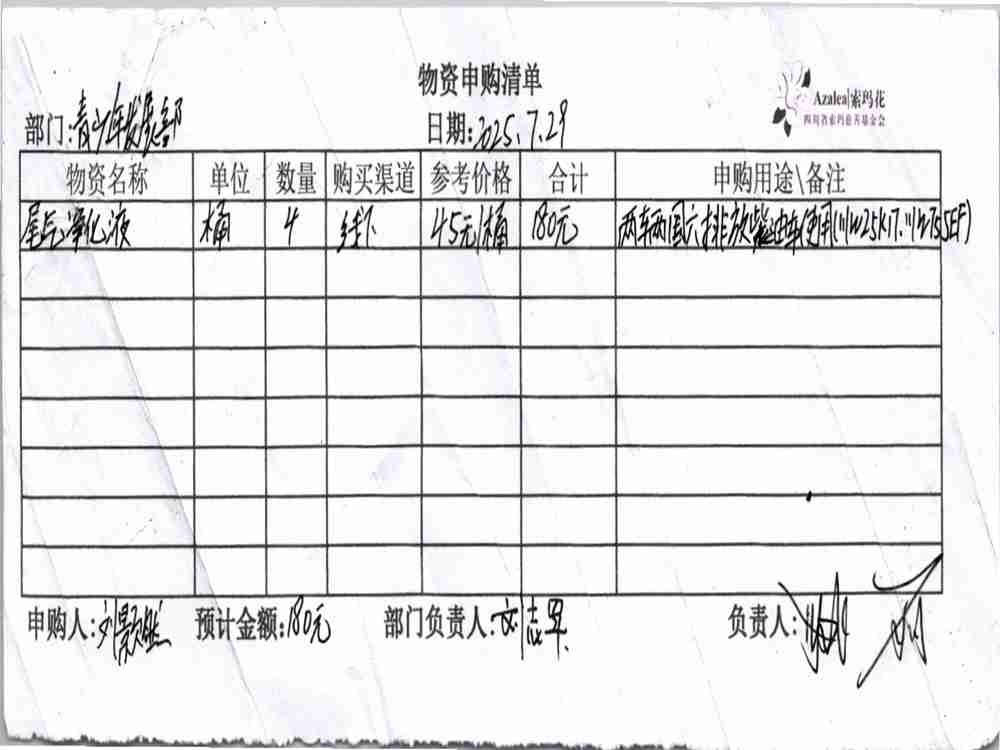 物资申购清单
Azalea|索玛花
四川省索玛慈善基金会
部门:青少年发展部 日期:2025.7.29
物资名称 单位 数量 购买渠道 参考价格 合计 申购用途\备注
尾气净化液 桶 4 线下 45元/桶 180元 两车两国六排放柴油车使用(川W25K17.川W7S5EF)
申购人:刘颢然 预计金额:180元 部门负责人:刘志军 负责人: